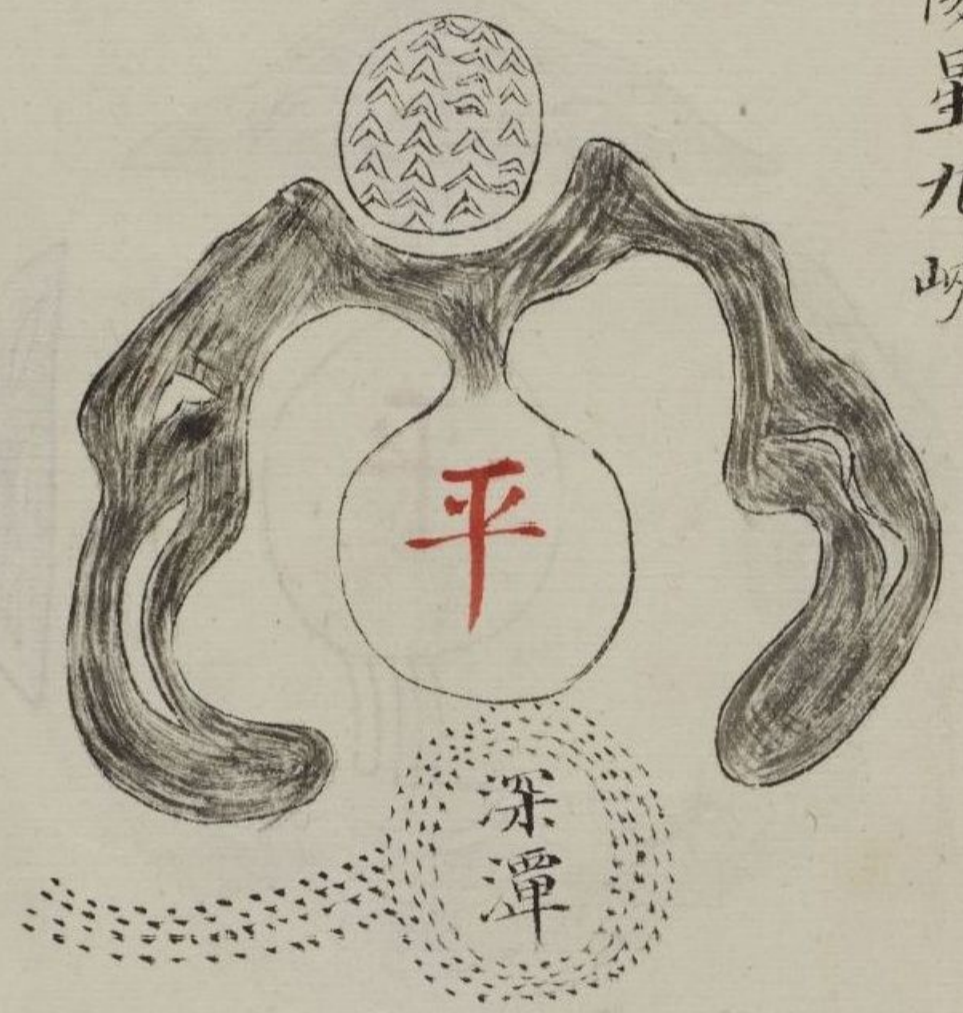 星九
平
深潭